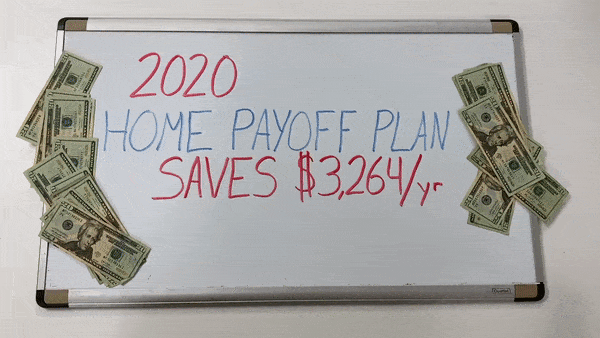 2020
HOME PAYOFF PLAN
SAVES $3,264/yr